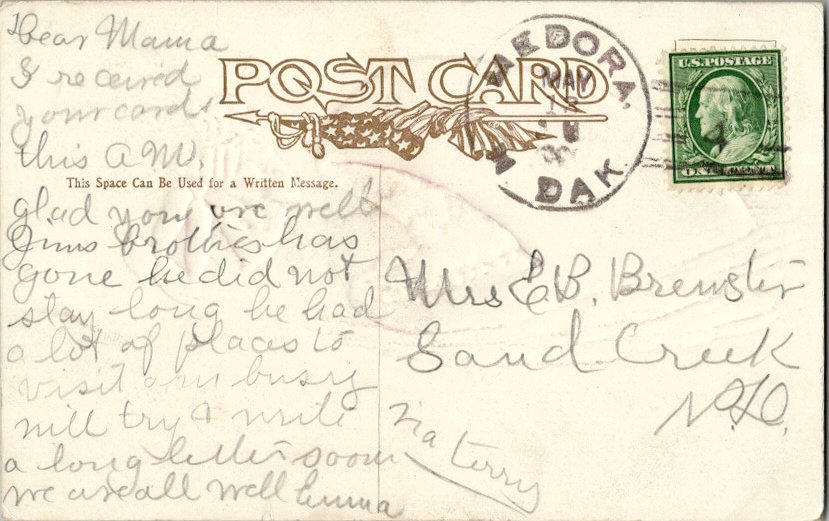 Dear Mama
I received
your cards
this A.M.
glad your are well
Jims brothers has
gone he did not
stay long he had
a lot of places to
visit am busy
will try & write
a long letter soon
we are all well Emma
POST CARD
This Space Can Be Used for a Written Message.
MEDORA,
MAY
N. DAK.
U.S. POSTAGE
Mrs E. B. Brewster
Sand Creek
N.D.
via Terry